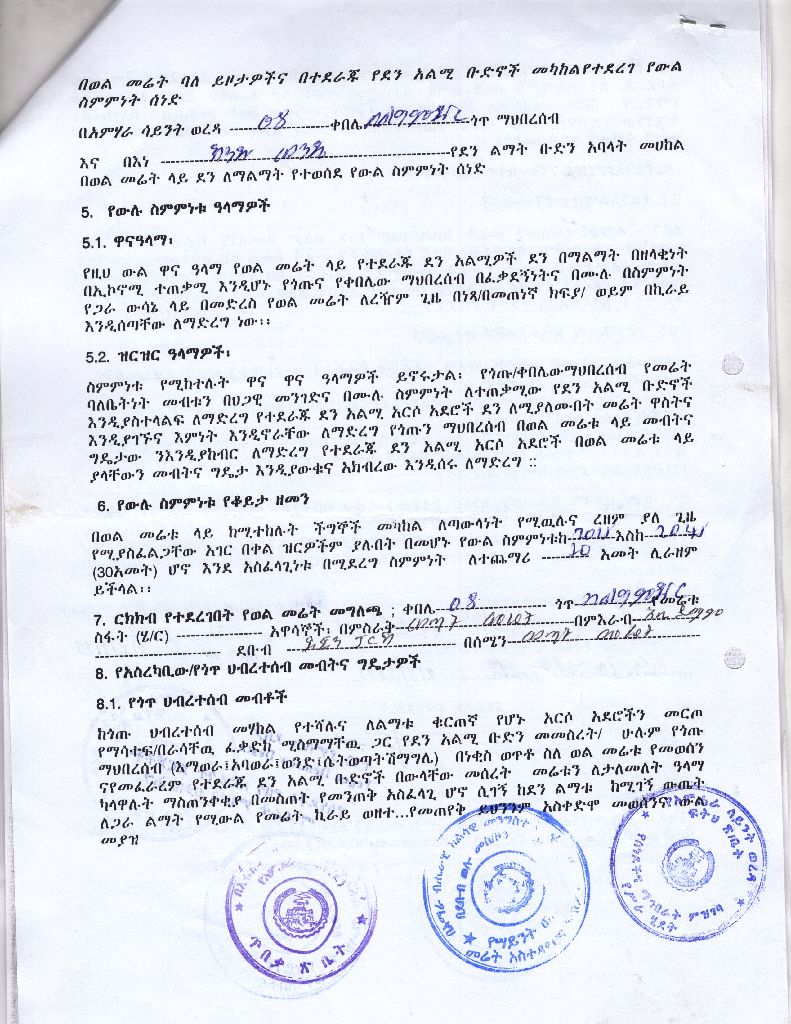 በወል መሬት ባለ ይዞታዎችና በተደራጁ የደን አልሚ ቡድኖች መካከልየተደረገ የውል
ስምምነት ሰነድ
በአምሃራ ሳይንት ወረዳ ------------08----------------ቀበሌ--------------------ጎጥ ማህበረሰብ
እና በእነ ----------------------------------------የደን ልማት ቡድን አባላት መሀከል
በወል መሬት ላይ ደን ለማልማት የተወሰደ የውል ስምምነት ሰነድ
5. የውሉ ስምምነቱ ዓላማዎች
5.1. ዋናዓላማ፡
የዚህ ውል ዋና ዓላማ የወል መሬት ላይ የተደራጁ ደን አልሚዎች ደን በማልማት በዘላቂነት
በኢኮኖሚ ተጠቃሚ እንዲሆኑ የጎጡና የቀበሌው ማህበረሰብ በፈቃደኝነትና በሙሉ በስምምነት
የጋራ ውሳኔ ላይ በመድረስ የወል መሬት ለረዥም ጊዜ በነጻ/በመጠነኛ ክፍያ/ ወይም በኪራይ
እንዲሰጣቸው ለማድረግ ነው፡፡
5.2. ዝርዝር ዓላማዎች፡
ስምምነቱ የሚከተሉት ዋና ዋና ዓላማዎች ይኖሩታል፡ የጎጡ/ቀበሌውማህበረሰብ የመሬት
ባለቤትነት መብቱን በህጋዊ መንገድና በሙሉ ስምምነት ለተጠቃሚው የደን አልሚ ቡድኖች
እንዲያስተላልፍ ለማድረግ የተደራጁ ደን አልሚ አርሶ አደሮች ደን ለሚያለሙበት መሬት ዋስትና
እንዲያገኙና እምነት እንዲኖራቸው ለማድረግ የጎጡን ማህበረሰብ በወል መሬቱ ላይ መብትና
ግዴታው ንእንዲያከብር ለማድረግ የተደራጁ ደን አልሚ አርሶ አደሮች በወል መሬቱ ላይ
ያላቸውን መብትና ግዴታ እንዲያውቁና አክብረው እንዲሰሩ ለማድረግ ::
6. የውሉ ስምምነቱ የቆይታ ዘመን
በወል መሬቱ ላይ ከሚተከሉት ችግኞች መካከል ለጣውላነት የሚዉሉና ረዘም ያለ ጊዜ
የሚያስፈልጋቸው አገር በቀል ዝርዎችም ያሉበት በመሆኑ የውል ስምምነቱከ--2011--እስከ--2041
(30አመት) ሆኖ እንደ አስፈላጊነቱ በሚደረግ ስምምነት ለተጨማሪ ------10 አመት ሊራዘም
ይችላል፡፡
7. ርክክብ የተደረገበት የወል መሬት መግለጫ ; ቀበሌ--08---------------- ጎጥ----------------የመሬቱ
ስፋት (ሄ/ር) ----------------- አዋሳኞች፡ በምስራቅ---------------------በምእራብ-------------
------------------------- ደቡብ ------------------------- በሰሜን-------------------------
8. የአስረካቢው/የጎጥ ህብረተሰብ መብትና ግዴታዎች
8.1. የጎጥ ህብረተሰብ መብቶች
ከጎጡ ህብረተሰብ መሃከል የተሻሉና ለልማቱ ቁርጠኛ የሆኑ አርሶ አደሮችን መርጦ
የማሳተፍ/በራሳቸዉ ፈቃድከ ሚስማማቸዉ ጋር የደን አልሚ ቡድን መመስረት/ ሁሉም የጎጡ
ማህበረሰብ (እማወራ፤አባወራ፤ወንድ፤ሴትወጣትሽማግሌ) በነቂስ ወጥቶ ስለ ወል መሬቱ የመወሰን
ናየመፈራረም የተደራጁ ደን አልሚ ቡድኖች በውላቸው መሰረት መሬቱን ለታለመለት ዓላማ
ካላዋሉት ማስጠንቀቂያ በመስጠት የመንጠቅ አስፈላጊ ሆኖ ሲገኝ ከደን ልማቱ ከሚገኝ ውጤት
ለጋራ ልማት የሚውል የመሬት ኪራይ ወዘተ...የመጠየቅ ይህንንም አስቀድሞ መወሰንና ውል
መያዝ
ጥበቃ ጽ ቤት